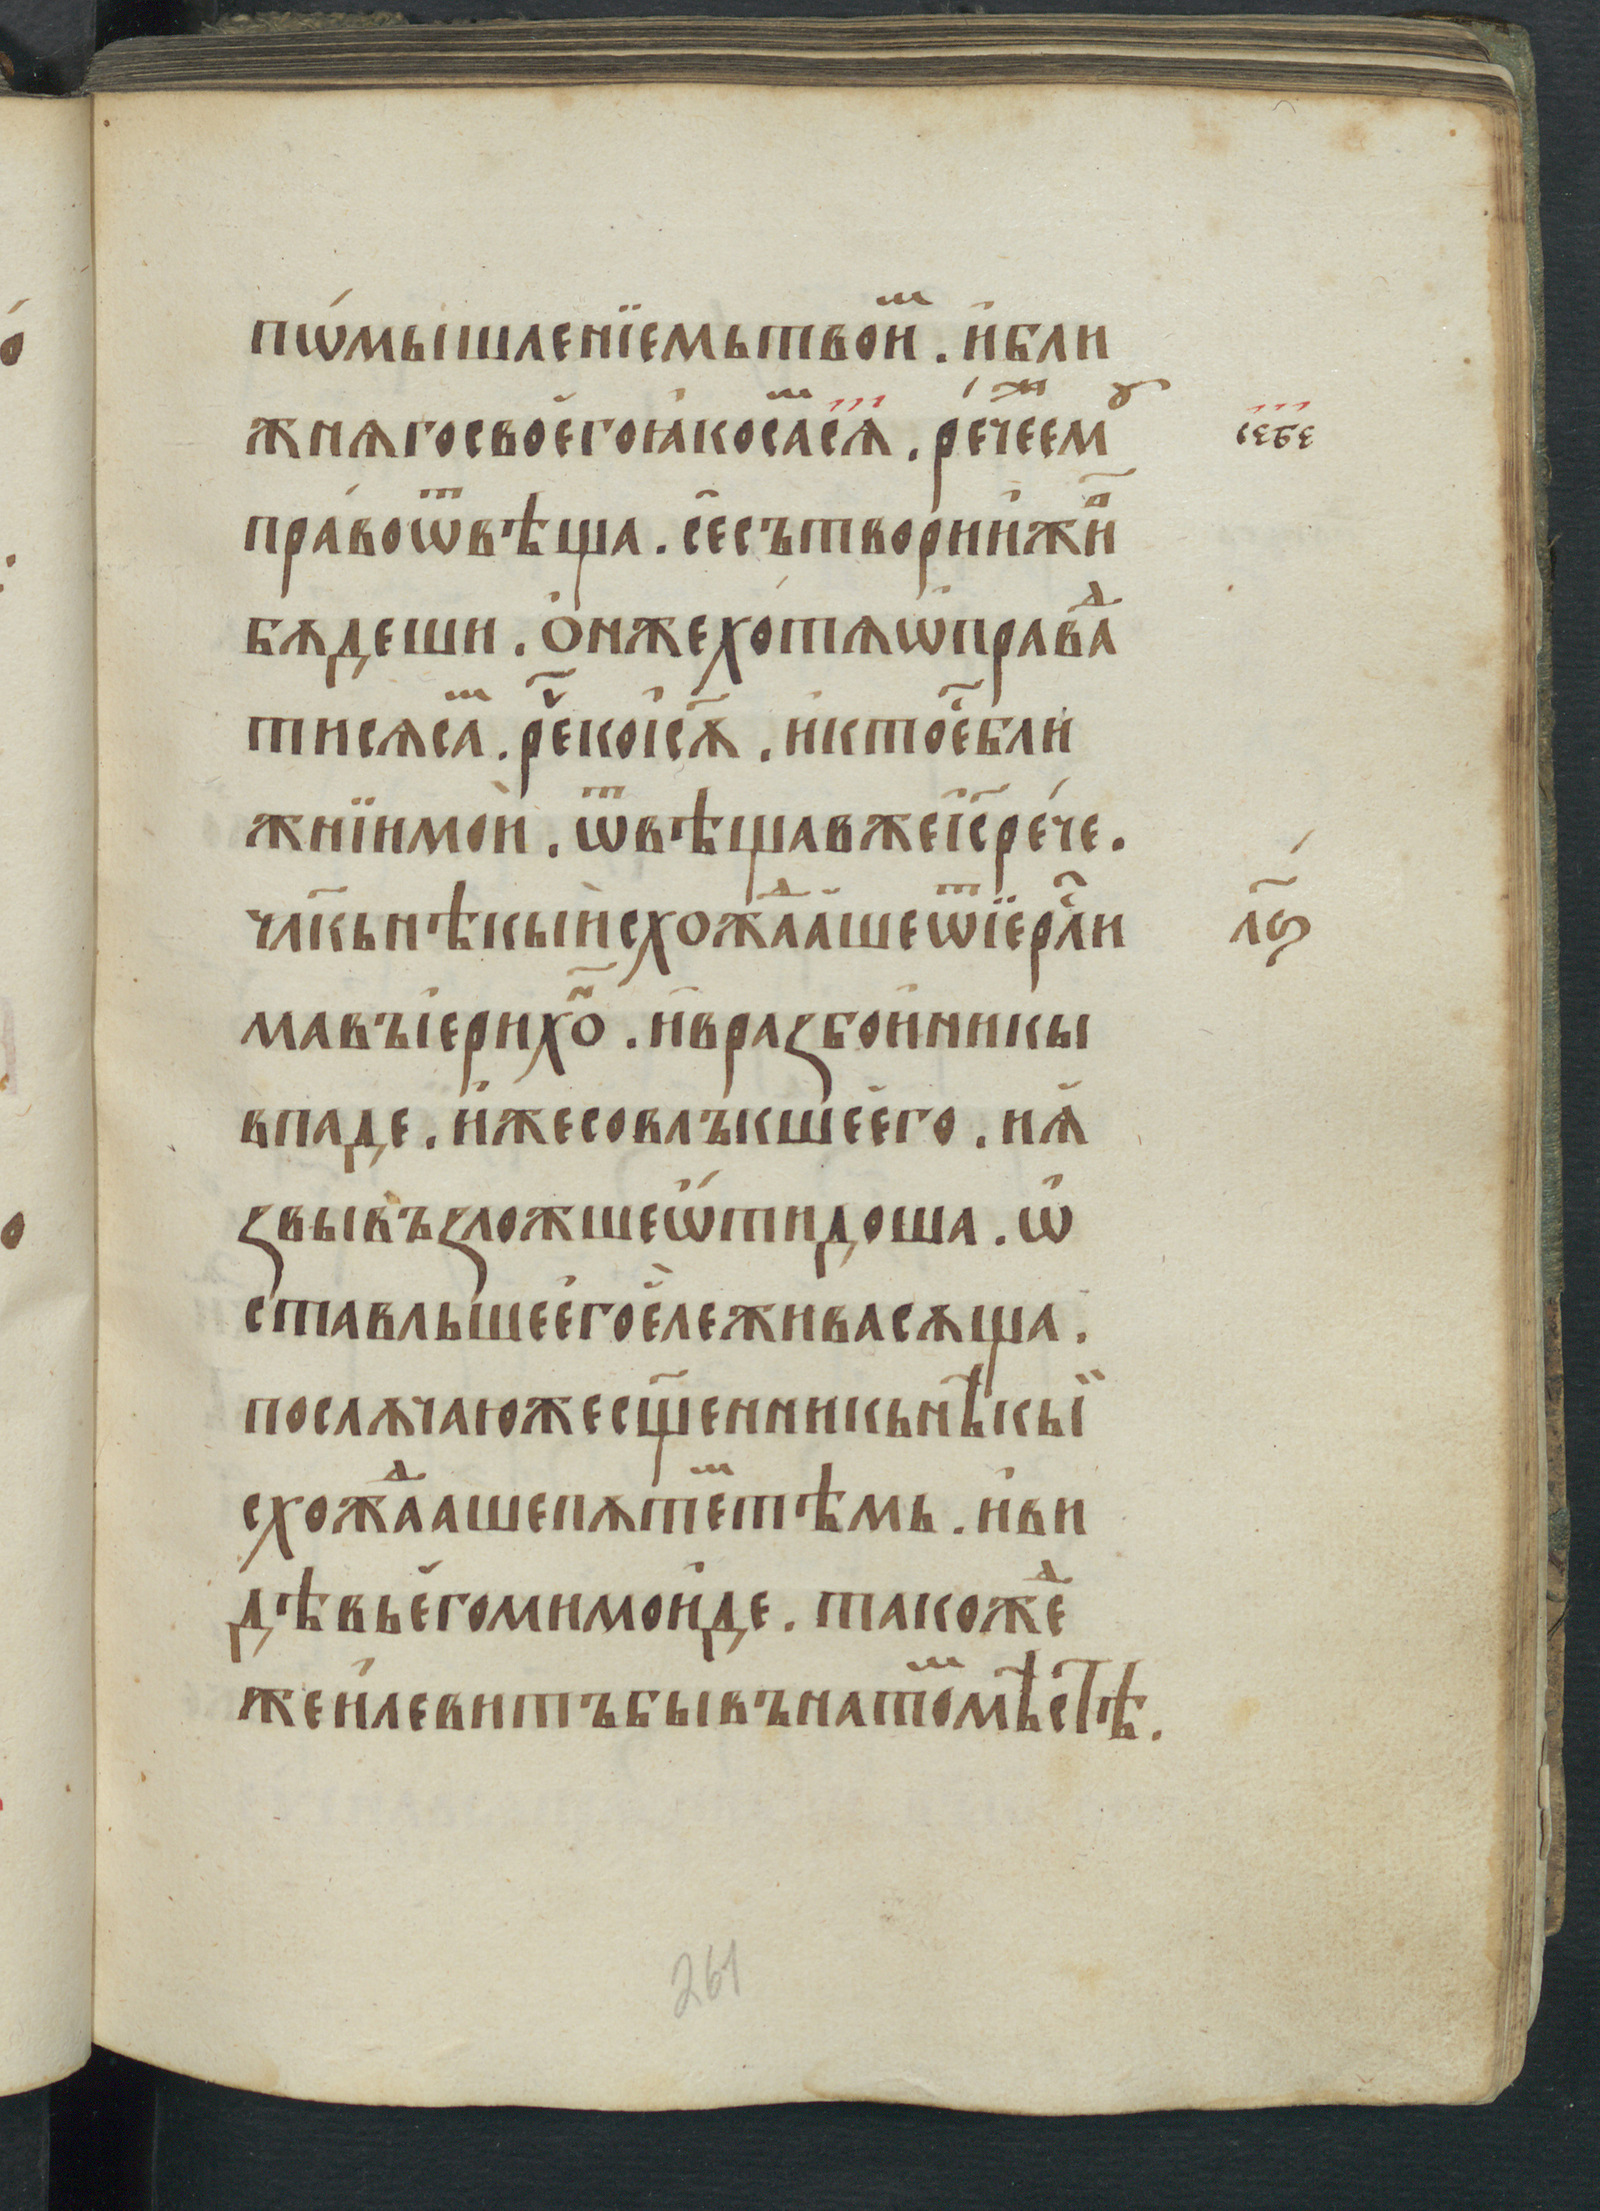 пѡ́мышленїемьтвои҆ⷨ. и҆бли
жнѧгосвое҆гоꙗ҆косаⷨсѧ. ре́чеемꙋⷤ
себе
пра́воѿвѣща. се҆сътвории҆жи҃вⸯ
бѫдеши. ѻ҆нжехо́тѧѡ҆правⷣа
тисѧсаⷨ. р҃екоі҆с҃ѧ. и҆ктое҆ⷭбли
жнїимои҆. ѿвѣщавжеі҆с҃ре́че.
чл҃кьнѣкыи҆схожⷣаа҆шеѿїерⷭ҇ли
л҃ѕ
мавъі҆ерихѡⷩ. и҆вразбои҆никы
впаде. и҆жесовлъкшее҆го. иѧ҆
звывъзложшеѡ҆тидоша. ѡ҆
ставльшее҆гое҆лежнвасѫща.
послѫчаюжесщ҃енникьнѣ́кыї
схожⷣаашепѫтеⷨтѣмь. и҆ви
дѣвье҆гомимои҆де. такожⷣе
жеи҆левитъбывънатоⷨмѣ҆стѣ.
261